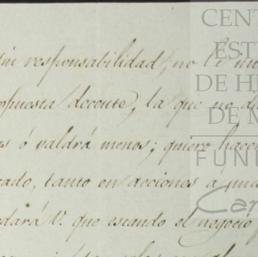 responsabilidad, no le
opuesta decente, la que no
ó valdrá menos; quiero hacer
cado, tanto en acciones á
dará V. que estando el negocio
CENT
EST
DE H
DE M
FUN
Ca